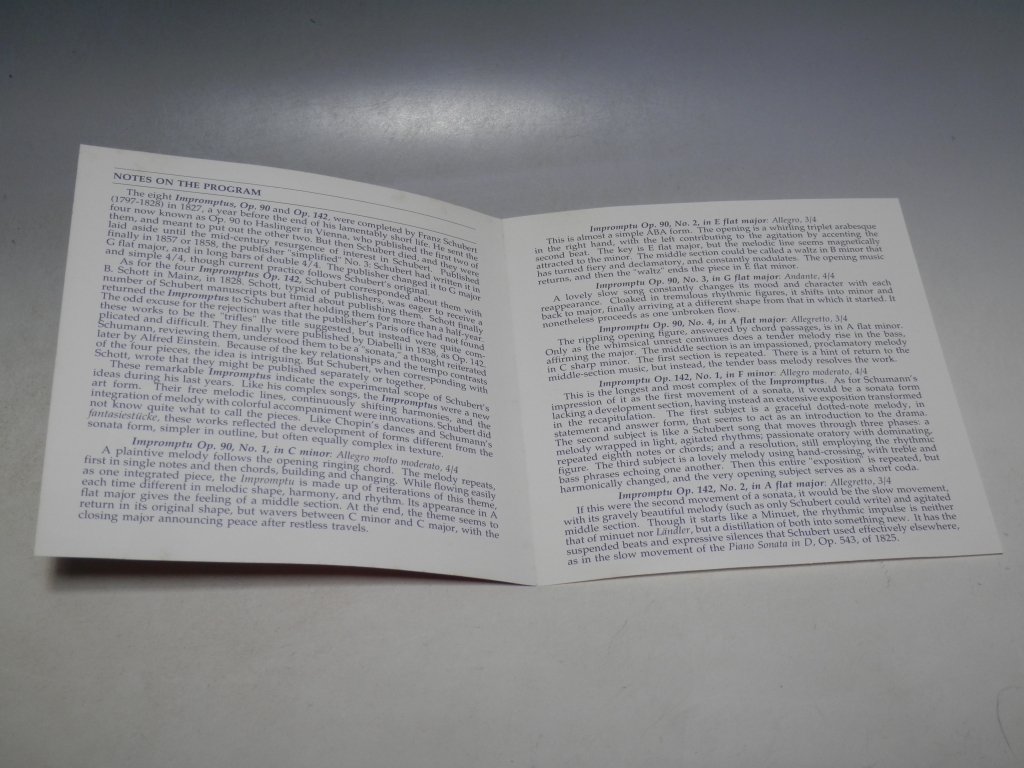 NOTES ON THE PROGRAM
The eight Impromptus, Op. 90 and Op. 142, were completed by Franz Schubert
(1797-1828) in 1827, a year before the end of his lamentably short life. He sent the
four now known as Op. 90 to Haslinger in Vienna, who published the first two of
them, and meant to put out the other two. But then Schubert died, and they were
laid aside until the mid-century resurgence of interest in Schubert. Published
finally in 1857 or 1858, the publisher "simplified" No. 3; Schubert had written it in
G flat major, and in long bars of double 4/4. The publisher changed it to G major
and simple 4/4, though current practice follows Schubert's original.
As for the four Impromptus Op. 142, Schubert corresponded about them with
B. Schott in Mainz, in 1828. Schott, typical of publishers, was eager to receive a
number of Schubert manuscripts but timid about publishing them. Schott finally
returned the Impromptus to Schubert after holding them for more than a half-year.
The odd excuse for the rejection was that the publisher's Paris office had not found
these works to be the "trifles" the title suggested, but instead were quite com-
plicated and difficult. They finally were published by Diabelli in 1838, as Op. 142.
Schumann, reviewing them, understood them to be a "sonata," a thought reiterated
later by Alfred Einstein. Because of the key relationships and the tempo contrasts
of the four pieces, the idea is intriguing. But Schubert, when corresponding with
Schott, wrote that they might be published separately or together.
These remarkable Impromptus indicate the experimental scope of Schubert's
ideas during his last years. Like his complex songs, the Impromptus were a new
art form. Their free melodic lines, continuously shifting harmonies, and the
integration of melody with colorful accompaniment were innovations. Schubert did
not know quite what to call the pieces. Like Chopin's dances and Schumann's
fantasiestücke, these works reflected the development of forms different from the
sonata form, simpler in outline, but often equally complex in texture.
Impromptu Op. 90, No. 1, in C minor: Allegro molto moderato, 4/4
A plaintive melody follows the opening ringing chord. The melody repeats,
first in single notes and then chords, building and changing. While flowing easily
as one integrated piece, the Impromptu is made up of reiterations of this theme,
each time different in melodic shape, harmony, and rhythm. Its appearance in A
flat major gives the feeling of a middle section. At the end, the theme seems to
return in its original shape, but wavers between C minor and C major, with the
closing major announcing peace after restless travels.
Impromptu Op. 90, No. 2, in E flat major: Allegro, 3/4
This is almost a simple ABA form. The opening is a whirling triplet arabesque
in the right hand, with the left contributing to the agitation by accenting the
second beat. The key is E flat major, but the melodic line seems magnetically
attracted to the minor. The middle section could be called a waltz in B minor that
has turned fiery and declamatory, and constantly modulates. The opening music
returns, and then the "waltz" ends the piece in E flat minor.
Impromptu Op. 90, No. 3, in G flat major: Andante, 4/4
A lovely slow song constantly changes its mood and character with each
reappearance. Cloaked in tremulous rhythmic figures, it shifts into minor and
back to major, finally arriving at a different shape from that in which it started. It
nonetheless proceeds as one unbroken flow.
Impromptu Op. 90, No. 4, in A flat major: Allegretto, 3/4
The rippling opening figure, answered by chord passages, is in A flat minor.
Only as the whimsical unrest continues does a tender melody rise in the bass,
affirming the major. The middle section is an impassioned, proclamatory melody
in C sharp minor. The first section is repeated. There is a hint of return to the
middle-section music, but instead, the tender bass melody resolves the work.
Impromptu Op. 142, No. 1, in F minor: Allegro moderato, 4/4
This is the longest and most complex of the Impromptus. As for Schumann's
impression of it as the first movement of a sonata, it would be a sonata form
lacking a development section, having instead an extensive exposition transformed
in the recapitulation. The first subject is a graceful dotted-note melody, in
statement and answer form, that seems to act as an introduction to the drama.
The second subject is like a Schubert song that moves through three phases: a
melody wrapped in light, agitated rhythms; passionate oratory with dominating,
repeated eighth notes or chords; and a resolution, still employing the rhythmic
figure. The third subject is a lovely melody using hand-crossing, with treble and
bass phrases echoing one another. Then this entire "exposition" is repeated, but
harmonically changed, and the very opening subject serves as a short coda.
Impromptu Op. 142, No. 2, in A flat major: Allegretto, 3/4
If this were the second movement of a sonata, it would be the slow movement,
with its gravely beautiful melody (such as only Schubert could write) and agitated
middle section. Though it starts like a Minuet, the rhythmic impulse is neither
that of minuet nor Ländler, but a distillation of both into something new. It has the
suspended beats and expressive silences that Schubert used effectively elsewhere,
as in the slow movement of the Piano Sonata in D, Op. 543, of 1825.